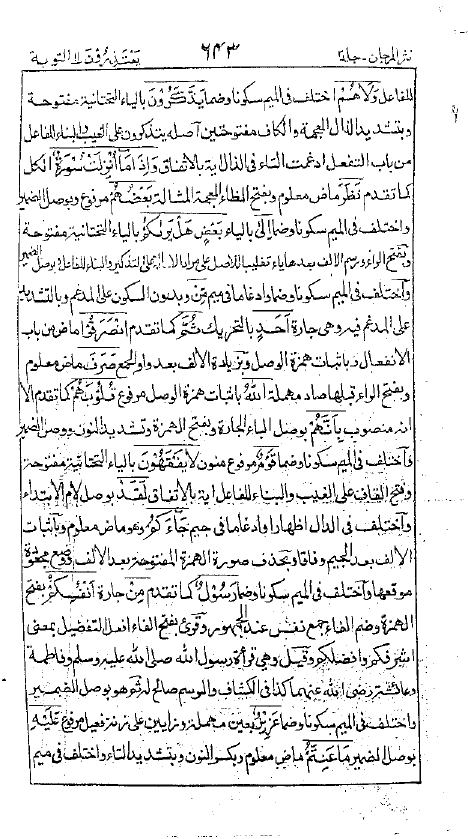 نثر المرجان - جلد٢ ٦٤٣ يعتذرون الا التوبة
للفاعل وَلَا هُمْ اختلف في الميم سكونا وضما يَذَّكَّرُونَ بالياء التحتانية مفتوحة
وبتشديد الذال المعجمة والكاف مفتوحتين اصله يتذكرون على الغيب والبناء للفاعل
من باب التفعل ادغمت التاء في الذال اية بالاتفاق وَإِذَا مَا أُنْزِلَتْ سُورَةٌ الكل
كما تقدم نَظَرَ ماض معلوم وبفتح الظاء المعجمة المشالة بَعْضُهُمْ مرفوع وبوصل الضمير
واختلف في الميم سكونا وضما إِلَىٰ بالياء بَعْضٍ هَلْ يَرَىٰكُمْ بالياء التحتانية مفتوحة
وبفتح الراء ورسم الالف بعدها ياء تغليبا للاصل على التذكير والبناء للفاعل وبوصل الضمير
واختلف في الميم سكونا وضما وادغاما في ميم مِنْ وبدون السكون على المدغم وبالتشديد
على المدغم فيه وهي جارة أَحَدٍ بالتحريك ثُمَّ كما تقدم انْصَرَفُوا ماض من باب
الانفعال وباثبات همزة الوصل وبزيادة الالف بعد واو الجمع صَرَفَ ماض معلوم
وبفتح الراء قبلها صاد مهملة اللهُ باثبات همزة الوصل مرفوع قُلُوبَهُمْ كما تقدم الا
انه منصوب بِأَنَّهُمْ بوصل الباء الجارة وبفتح الهمزة وتشديد النون ووصل الضمير
واختلف في الميم سكونا وضما قَوْمٌ مرفوع منون لَا يَفْقَهُونَ بالياء التحتانية مفتوحة
وفتح القاف على الغيب والبناء للفاعل اية بالاتفاق لَقَدْ بوصل لام الابتداء
واختلف في الدال اظهارا وادغاما في جيم جَاءَكُمْ وهو ماض معلوم وباثبات
الالف بعد الجيم وفاقا وبحذف صورة الهمزة المفتوحة بعد الالف
موقعها واختلف في الميم سكونا وضما رَسُولٌ كما تقدم مِنْ جارة أَنْفُسِكُمْ بفتح
الهمزة وضم الفاء جمع نفس عند الجمهور وقرئ بفتح الفاء افعل التفضيل بمعنى
اشرفكم وافضلكم وقيل وهي قراءة رسول الله صلى الله عليه وسلم وفاطمة
وعائشة رضي الله عنهما كذا في الكشاف والرسم صالح له ثم هو بوصل الضمير
واختلف في الميم سكونا وضما عَزِيزٌ بعين مهملة وزايين على زنة فعيل مرفوع عَلَيْهِ
بوصل الضمير مَا عَنِتُّمْ ماض معلوم وبكسر النون وبتشديد التاء واختلف في ميم